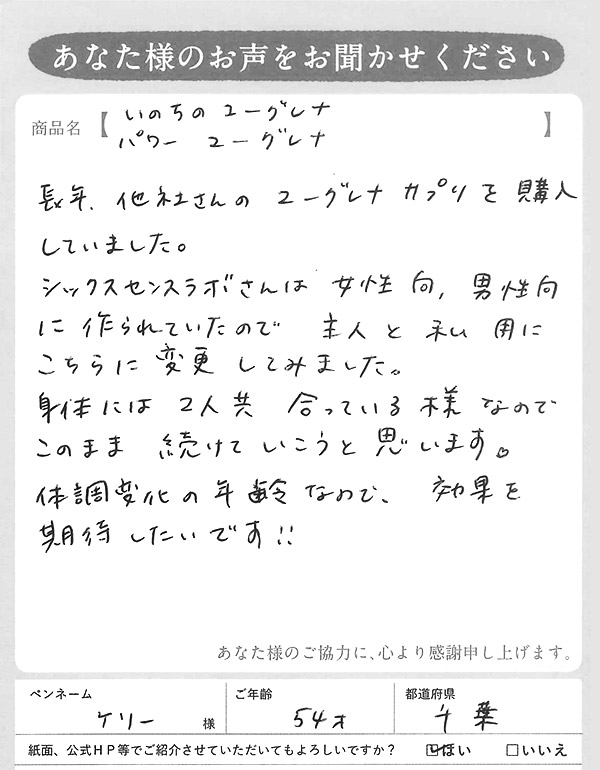 あなた様のお声をお聞かせください
商品名【 いのちのユーグレナ
パワー ユーグレナ 】
長年、他社さんの ユーグレナ カプリを 購入
していました。
シックスセンスラボさんは 女性向、男性向
に 作られていたので 主人と 私用に
こちらに 変更 してみました。
身体には 2人共 合っている 様 なので
このまま 続けて いこうと 思います。
体調変化の 年齢なので、 効果を
期待したいです!!
あなた様のご協力に、心より感謝申し上げます。
ペンネーム ご年齢 都道府県
ケリー 様 54才 千葉
紙面、公式HP等でご紹介させていただいてもよろしいですか? ☑はい □いいえ